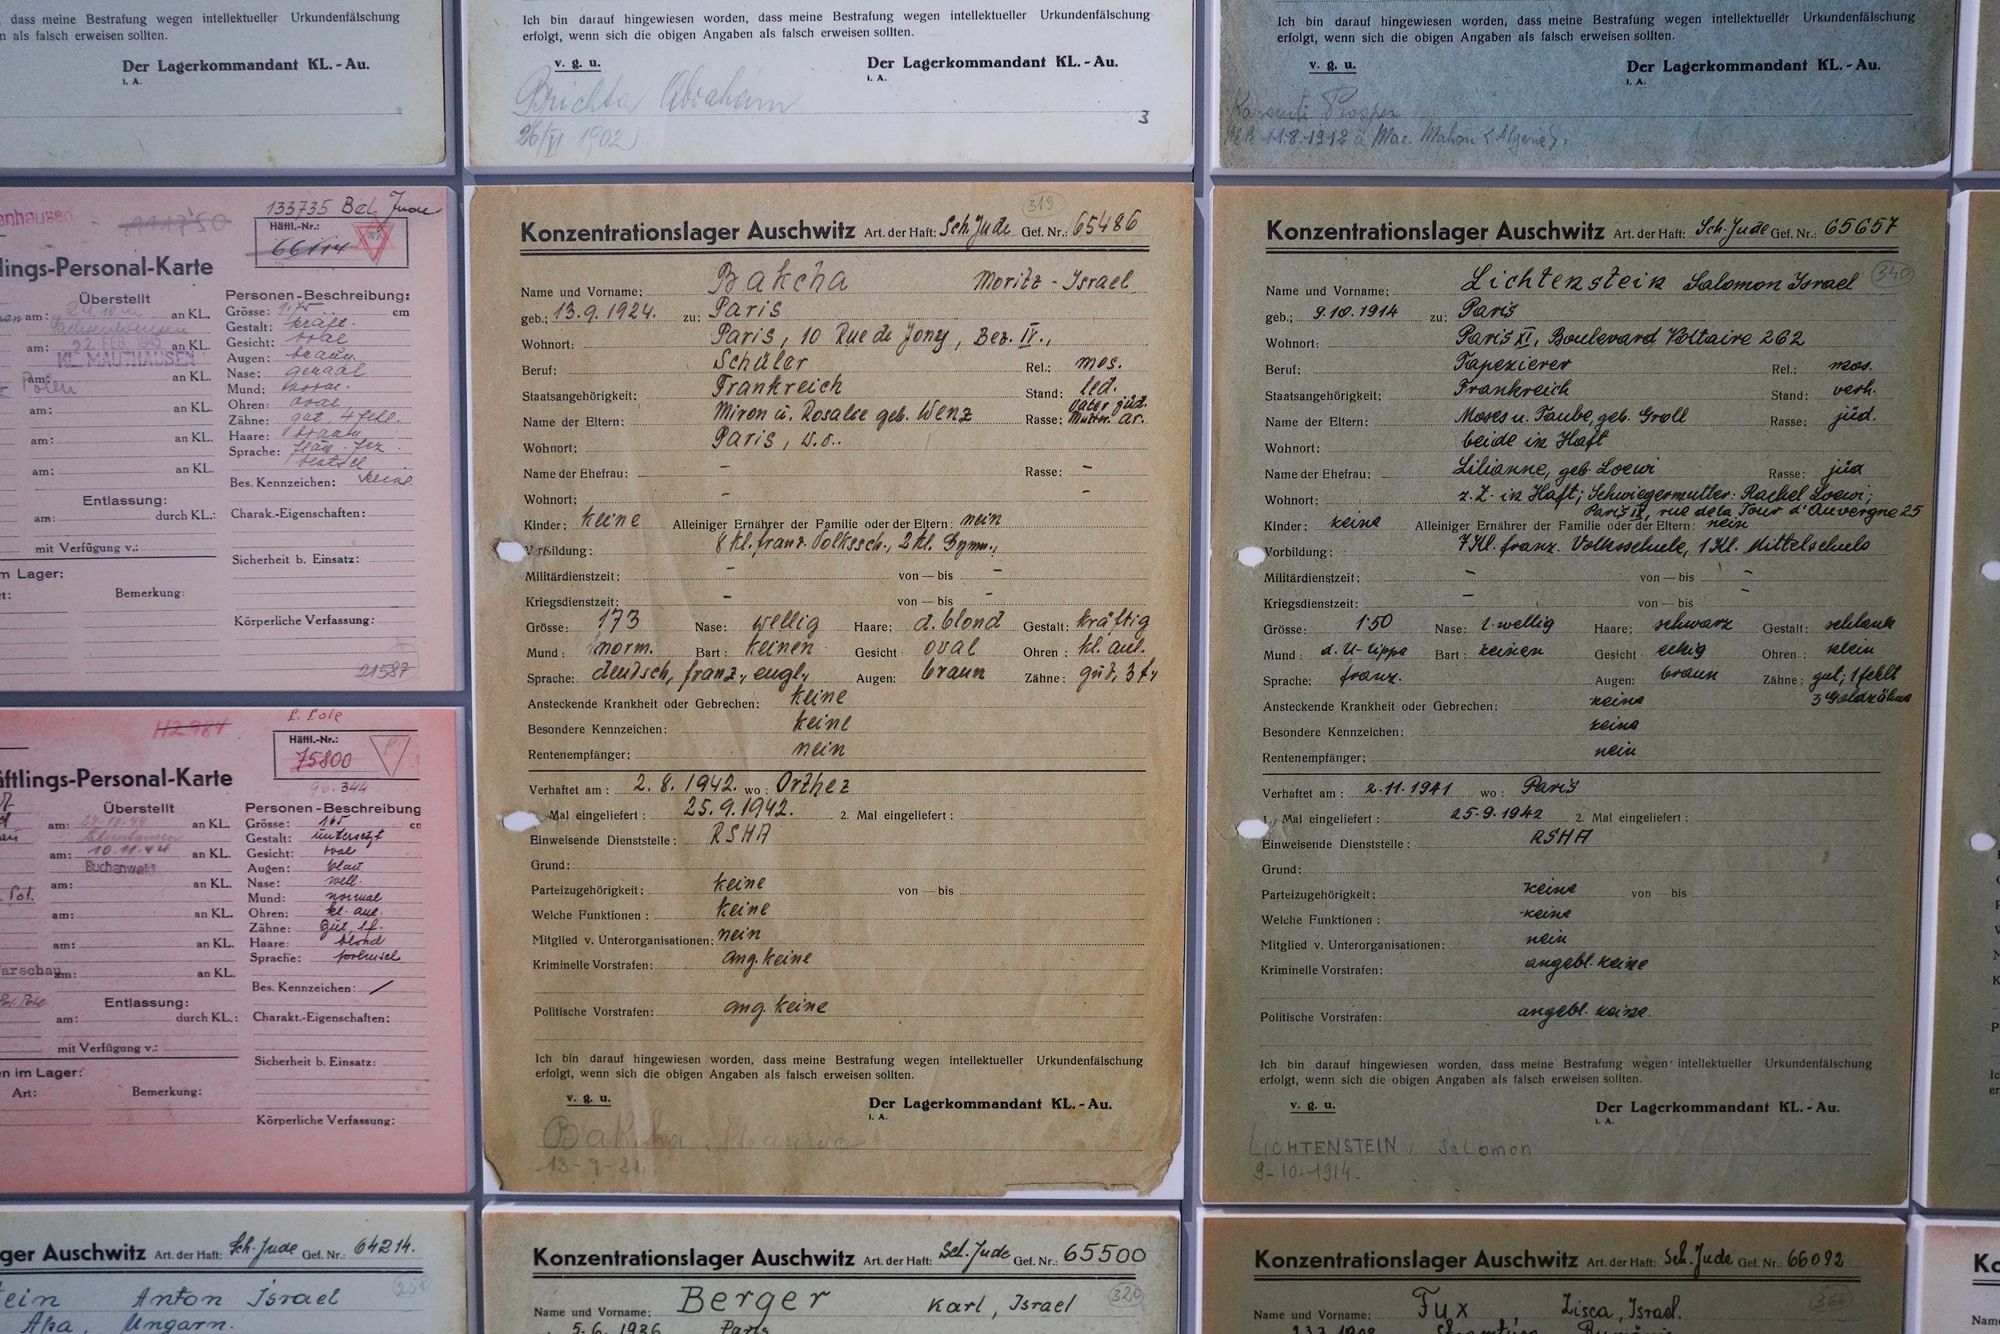 dass meine Bestrafung wegen intellektueller Urkundenfälschung
als falsch erweisen sollten.
Der Lagerkommandant KL.-Au.
i. A.
Ich bin darauf hingewiesen worden, dass meine Bestrafung wegen intellektueller Urkundenfälschung
erfolgt, wenn sich die obigen Angaben als falsch erweisen sollten.
v. g. u. Der Lagerkommandant KL.-Au.
i. A.
Brichta Abraham
26/VI 1902
3
Ich bin darauf hingewiesen worden, dass meine Bestrafung wegen intellektueller Urkundenfälschung
erfolgt, wenn sich die obigen Angaben als falsch erweisen sollten.
v. g. u. Der Lagerkommandant KL.-Au.
i. A.
Prosper
Mac. Mahon
133735 Bel. Jude
Häftl.-Nr.:
66114
lings-Personal-Karte
Überstellt
am: an KL.
am: 22. FEB. 1945 an KL.
KL. MAUTHAUSEN
am: an KL.
Polen
am: an KL.
am: an KL.
am: an KL.
Entlassung:
am: durch KL.:
mit Verfügung v.:
m Lager:
Bemerkung:
Personen-Beschreibung:
Grösse: 175 cm
Gestalt: kräft.
Gesicht: oval
Augen: braun
Nase: gerade
Mund:
Ohren: oval
Zähne: gut 4 fehl.
Haare: braun
Sprache:
Bes. Kennzeichen: keine
Charak.-Eigenschaften:
Sicherheit b. Einsatz:
Körperliche Verfassung:
21587
P. Pole
Häftl.-Nr.:
75800
P
96.344
äftlings-Personal-Karte
Überstellt
am: an KL.
am: 10.11.44 an KL.
Buchenwald
am: an KL.
am: an KL.
am: an KL.
Warschau am: an KL.
Entlassung:
am: durch KL.:
mit Verfügung v.:
en im Lager:
Art: Bemerkung:
Personen-Beschreibung
Grösse: 165
Gestalt: untersetzt
Gesicht: oval
Augen: blau
Nase: well.
Mund: normal
Ohren: kl. anl.
Zähne: gut, 1f.
Haare: blond
Sprache: polnisch
Bes. Kennzeichen: /
Charakt.-Eigenschaften:
Sicherheit b. Einsatz:
Körperliche Verfassung:
319
Konzentrationslager Auschwitz Art. der Haft: Sch. Jude Gef. Nr.: 65486
Name und Vorname: Bakcha Moritz - Israel
geb.: 13.9.1924. zu: Paris
Wohnort: Paris, 10 Rue de Jony, Bez. IV.,
Beruf: Schüler Rel.: mos.
Staatsangehörigkeit: Frankreich Stand: led.
Name der Eltern: Miron u. Rosalie geb. Wenz Rasse: Vater jüd. Mutter. ar.
Wohnort: Paris, w.o..
Name der Ehefrau: – Rasse: –
Wohnort: – –
Kinder: keine Alleiniger Ernährer der Familie oder der Eltern: nein
Vorbildung: 8 kl. franz. Volkssch., 2 kl. Gymn.,
Militärdienstzeit: – von — bis –
Kriegsdienstzeit: – von — bis –
Grösse: 173 Nase: wellig Haare: d. blond Gestalt: kräftig
Mund: norm. Bart: keinen Gesicht oval Ohren: kl. anl.
Sprache: deutsch, franz., engl., Augen: braun Zähne: gut, 3 f.,
Ansteckende Krankheit oder Gebrechen: keine
Besondere Kennzeichen: keine
Rentenempfänger: nein
Verhaftet am: 2.8.1942. wo: Orthez
Mal eingeliefert: 25.9.1942. 2. Mal eingeliefert:
Einweisende Dienststelle: RSHA
Grund:
Parteizugehörigkeit: keine von — bis
Welche Funktionen: keine
Mitglied v. Unterorganisationen: nein
Kriminelle Vorstrafen: ang. keine
Politische Vorstrafen: ang. keine
Ich bin darauf hingewiesen worden, dass meine Bestrafung wegen intellektueller Urkundenfälschung
erfolgt, wenn sich die obigen Angaben als falsch erweisen sollten.
v. g. u. Der Lagerkommandant KL.-Au.
i. A.
Bakcha Maurice
13-9-24.
Konzentrationslager Auschwitz Art. der Haft: Sch. Jude Gef. Nr.: 65657
340
Name und Vorname: Lichtenstein Salomon Israel
geb.: 9.10.1914 zu: Paris
Wohnort: Paris XI, Boulevard Voltaire 262
Beruf: Tapezierer Rel.: mos.
Staatsangehörigkeit: Frankreich Stand: verh.
Name der Eltern: Moses u. Taube, geb. Groll Rasse: jüd.
Wohnort: beide in Haft
Name der Ehefrau: Lilianne, geb. Loewi Rasse: jüd
Wohnort: z. Z. in Haft; Schwiegermutter: Rachel Loewi;
Paris IX, rue de la Tour d'Auvergne 25
Kinder: keine Alleiniger Ernährer der Familie oder der Eltern: nein
Vorbildung: 7 Kl. franz. Volksschule, 1 Kl. Mittelschule
Militärdienstzeit: – von — bis –
Kriegsdienstzeit: – von — bis
Grösse: 150 Nase: l. wellig Haare: schwarz Gestalt: schlank
Mund: d. U-lippe Bart: keinen Gesicht eckig Ohren: klein
Sprache: franz. Augen: braun Zähne: gut; 1 fehlt
3 Goldzähne
Ansteckende Krankheit oder Gebrechen: keine
Besondere Kennzeichen: keine
Rentenempfänger: nein
Verhaftet am: 2.11.1941 wo: Paris
1. Mal eingeliefert: 25.9.1942 2. Mal eingeliefert:
Einweisende Dienststelle: RSHA
Grund:
Parteizugehörigkeit: keine von — bis
Welche Funktionen: keine
Mitglied v. Unterorganisationen: nein
Kriminelle Vorstrafen: angebl. keine
Politische Vorstrafen: angebl. keine.
Ich bin darauf hingewiesen worden, dass meine Bestrafung wegen intellektueller Urkundenfälschung
erfolgt, wenn sich die obigen Angaben als falsch erweisen sollten.
v. g. u. Der Lagerkommandant KL.-Au.
i. A.
LICHTENSTEIN, Salomon
9-10-1914.
ger Auschwitz Art. der Haft: Sch. Jude Gef. Nr.: 64214.
258
ein Anton Israel
Ungarn.
Konzentrationslager Auschwitz Art. der Haft: Sch. Jude Gef. Nr.: 65500
320
Name und Vorname: Berger Karl, Israel
5.6.1926 Paris
Konzentrationslager Auschwitz Art. der Haft: Sch. Jude Gef. Nr.: 66092
366
Name und Vorname: Fux, Zisca, Israel.
Ko
Name